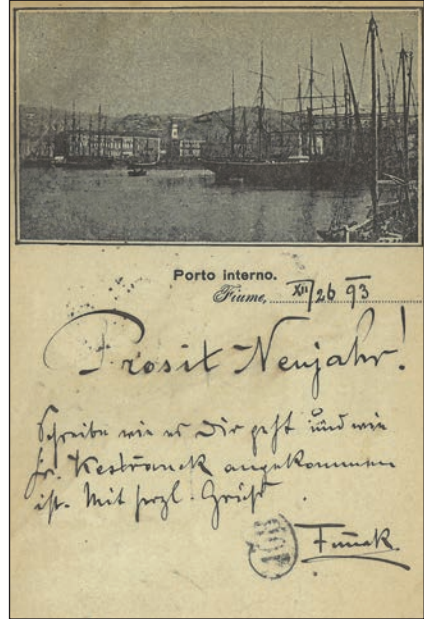 Porto interno.
Fiume, XII/26 93
Prosit Neujahr!
Schreibe wie es Dir geht und wie
Fr. Kestranek angekommen
ist. Mit herzl. Gruß